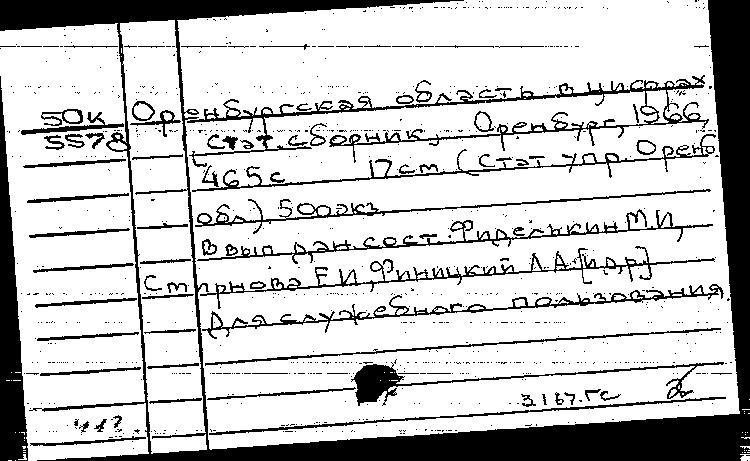 50к Оренбургская область в цифрах.
5578 Стат. сборник, Оренбург, 1966,
465с 17см. (Стат упр. Оренб
обл). 500экз.
В вып. дан. сост.: Фиделькин М.И,
Смирнова Е.И, Финицкий Л.А. [и др.]
Для служебного пользования.
3167.Гс
412.